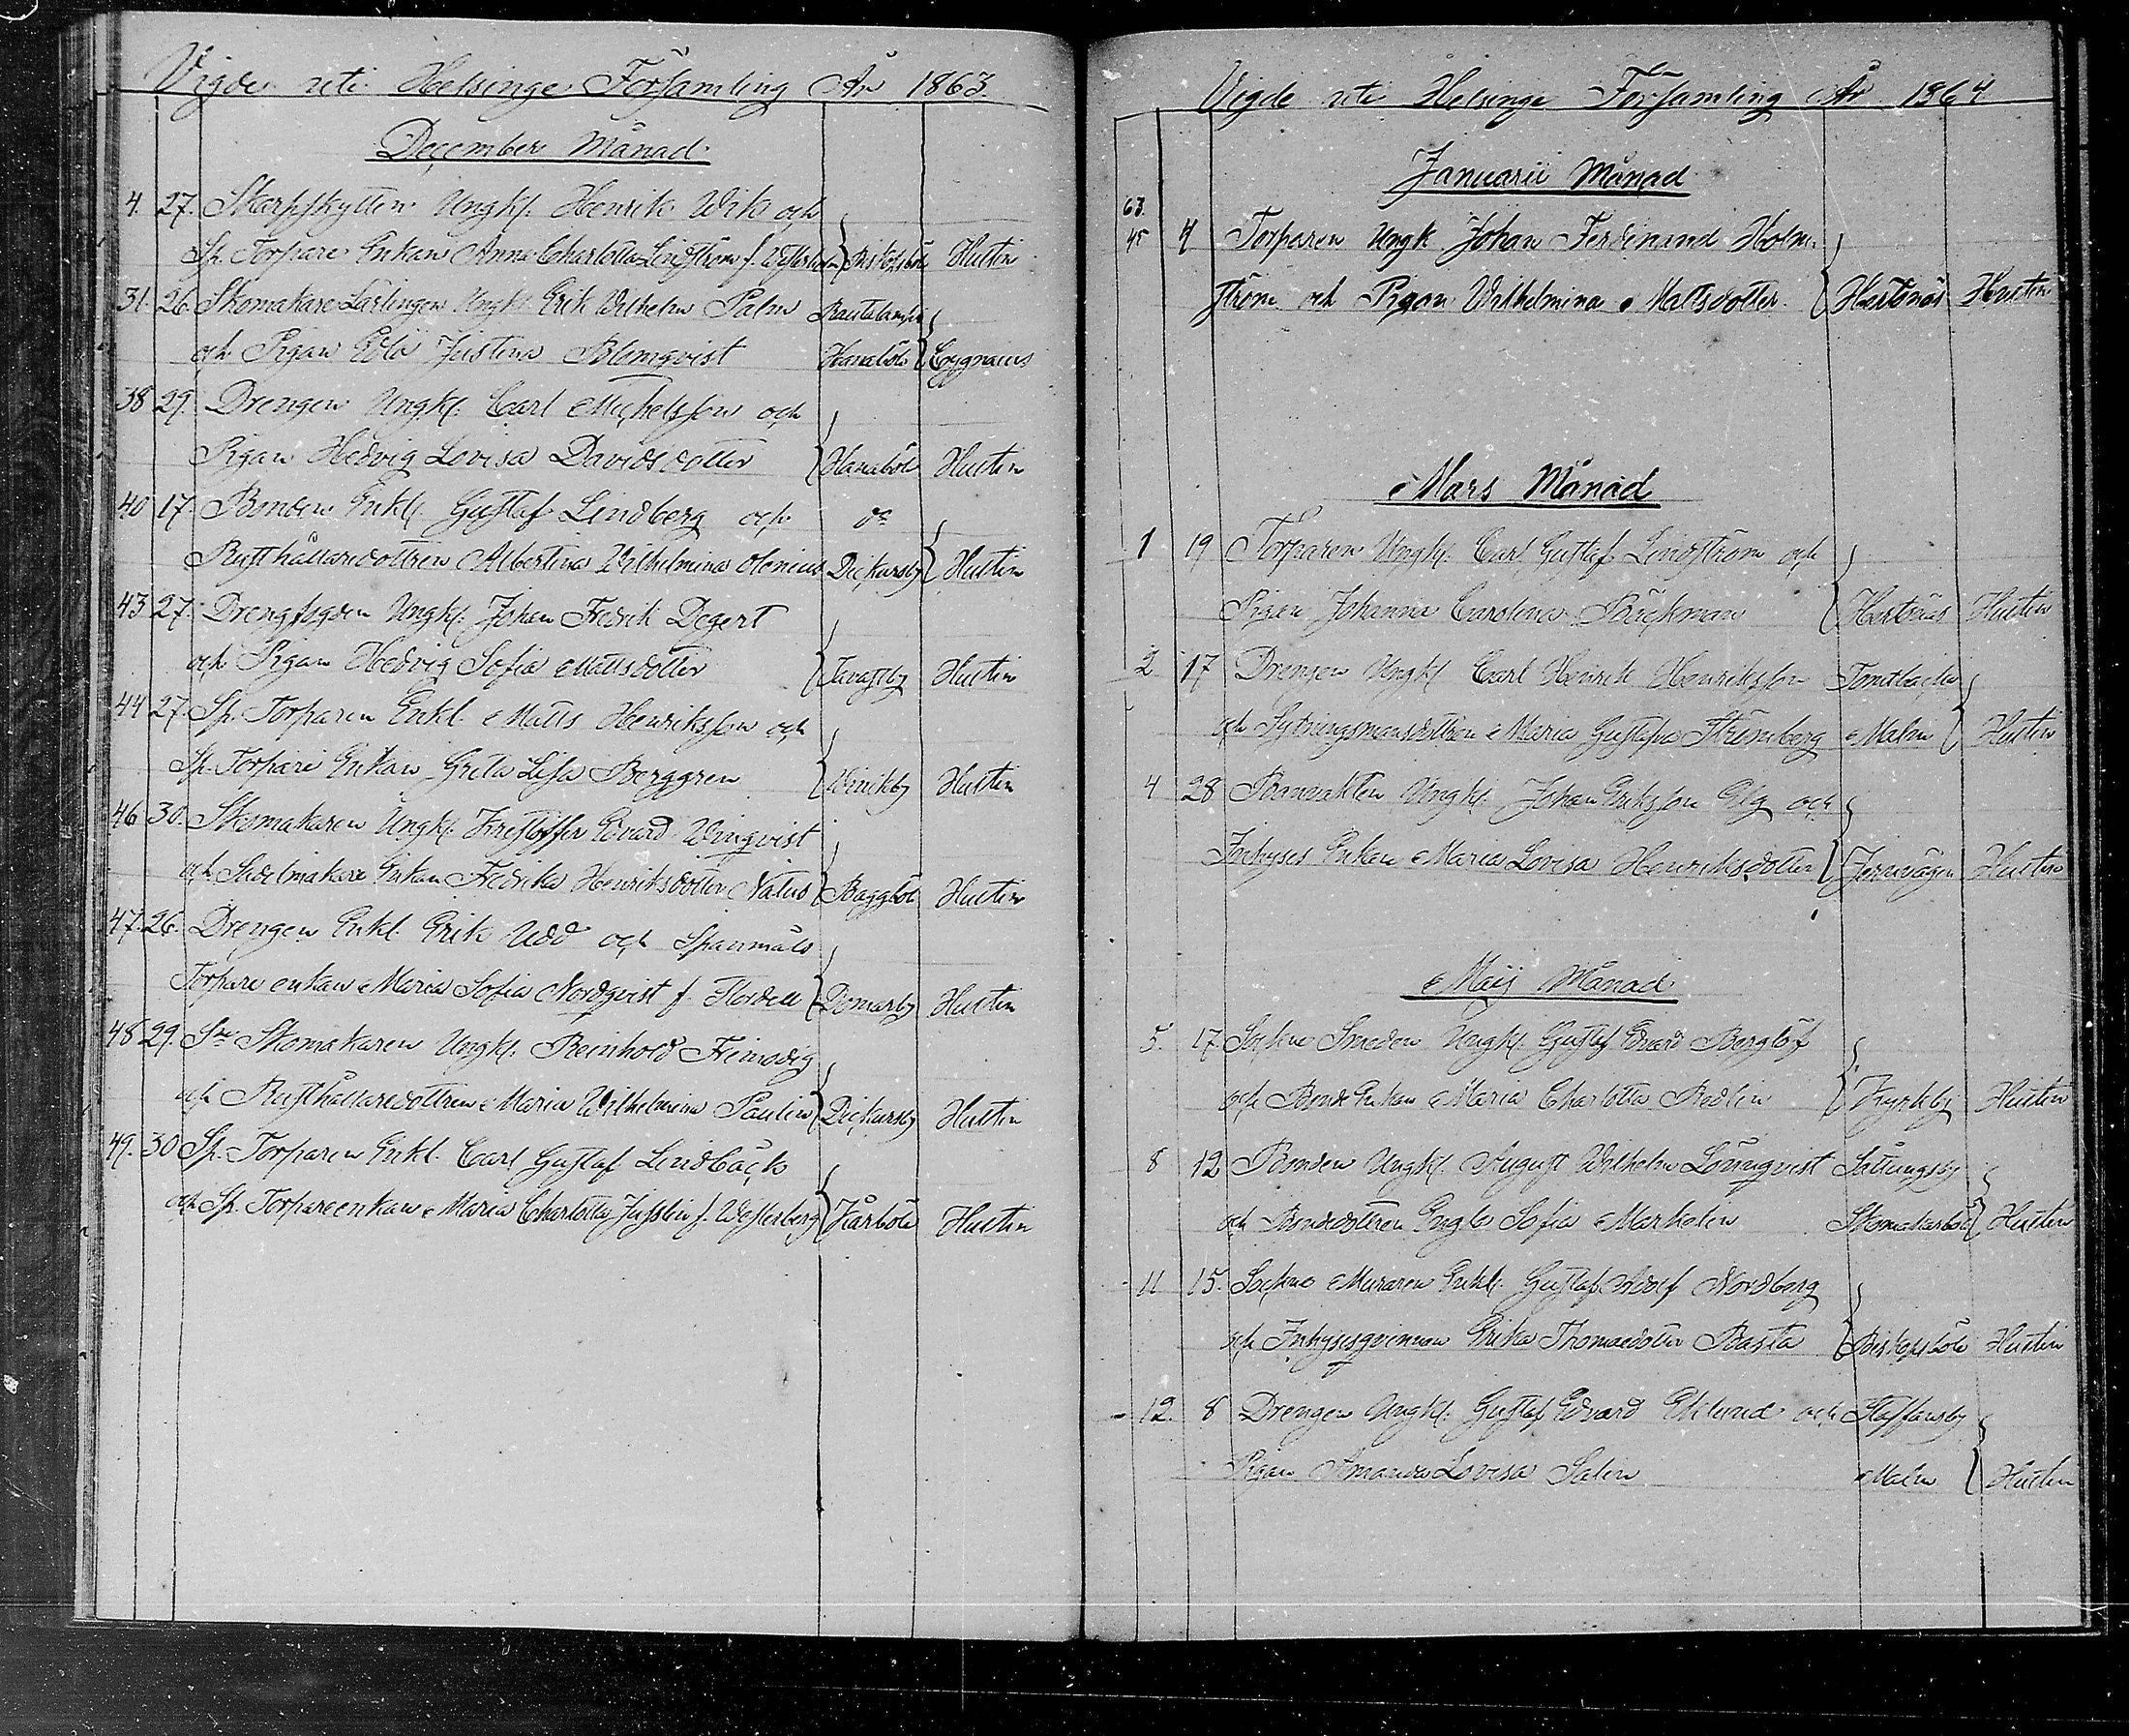 Vigde uti Helsinge Församling År 1863.
December Månad
4. 27. Skarpskytten Ungk. Henrik Wik och
Sp. Torpare Enkan Anna Charlotta Lindström f. Westerholm Biskopsböle Hustin
31. 26. Skomakare Lärlingen Ungk. Erik Wilhelm Palm Rautalampi
och Pigan Eva Justina Blomqvist Hanaböle Cygnaeus
38 29. Drengen Ungk. Carl Michelsson och
Pigan Hedvig Lovisa Davidsdotter Hanaböle Hustin
40 17. Bonden Enkl. Gustaf Lindberg och do
Rusthållaredottren Albertina Wilhelmina Olenius Dickursby Hustin
43 27. Drengfogden Ungk. Johan Fredrik Degert
och Pigan Hedvig Sofia Mattsdotter Tavastby Hustin
44 27. Sp. Torparen Enkl. Matts Henriksson och
Sp. Torpare Enkan Greta Lisa Berggren Vinikby Hustin
46 30. Skomakaren Ungk. Kristoffer Edvard Winqvist
och Sadelmakare Enkan Fredrika Henriksdotter Natus Baggböle Hustin
47. 26. Drengen Enkl. Erik Udd och Spanmåls
Torpare enkan Maria Sofia Nordqvist f. Flordell Domarby Hustin
48 29. Sne Skomakaren Ungk. Reinhold Frimodig
och Rusthållaredottren Maria Wilhelmina Paulin Dickursby Hustin
49. 30 Sp. Torparen Enkl. Carl Gustaf Lindbäck
och Sp. Torpareenkan Maria Charlotta Jusslin f. Westerberg Kårböle Hustin
Vigde uti Helsinge Församling År 1864.
Januarii Månad
63.
45 4 Torparen Ungk. Johan Ferdinand Holm-
ström och Pigan Wilhelmina Mattsdotter. Hertonäs Hustin
Mars Månad
1 19 Torparen Ungk. Carl Gustaf Lindström och
Pigan Johanna Carolina Bäckman Hertonäs Hustin
2 17 Drengen Ungk. Carl Henrik Henriksson Tomtbacka
och Sytningsmansdottren Maria Gustafva Strömberg Malm Hustin
4 28 Banvakten Ungk. Johan Eriksson Elg och
Inhyses Enkan Maria Lovisa Henriksdotter Jernvägen Hustin
Maij Månad
5. 17. Sockne Smeden Ungk. Gustaf Edvard Berglöf
och Bonde Enkan Maria Charlotta Rodlin Kyrkby Hustin
8 12 Bonden Ungk. August Wilhelm Lönnqvist Sottungsby
och Bondedottren Engla Sofia Markelin Skomakarböle Hustin
11 15. Sockne Muraren Enkl. Gustaf Adolf Nordberg
och Inhysesqvinnan Erika Thomasdotter Basta Biskopsböle Hustin
12. 8 Drengen Ungk. Gustaf Edvard Eklund och Staffansby
Pigan Amanda Lovisa Salin Malm Hustin